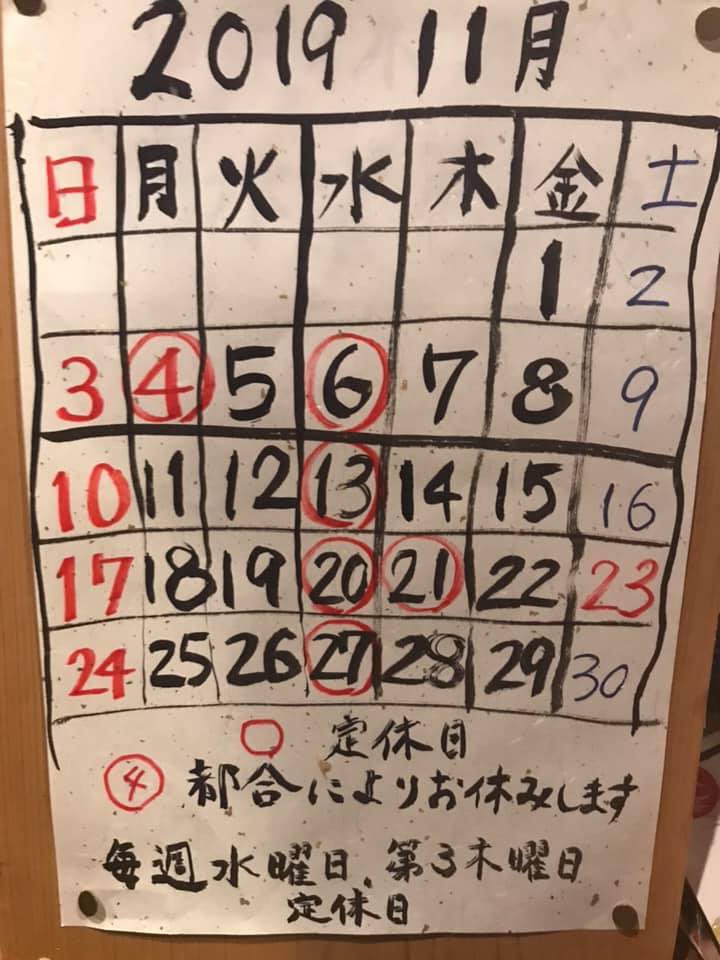 2019 11月
日 月 火 水 木 金 土
1 2
3 4 5 6 7 8 9
10 11 12 13 14 15 16
17 18 19 20 21 22 23
24 25 26 27 28 29 30
○ 定休日
④ 都合によりお休みします
毎週水曜日、第3木曜日
定休日